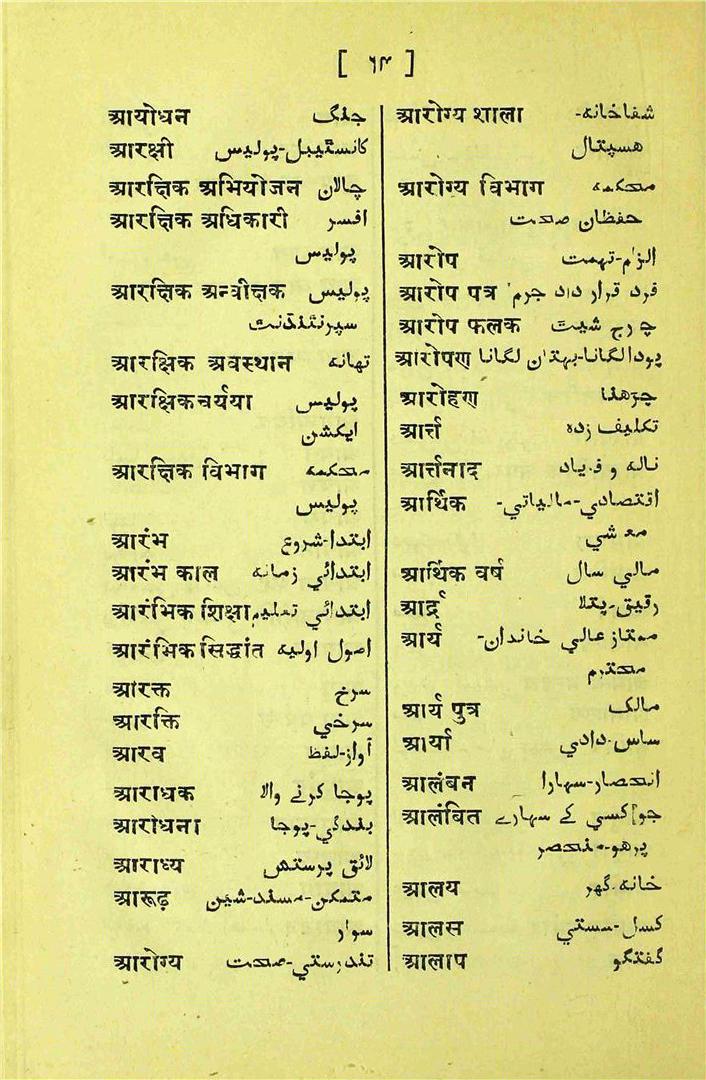 [ ٦٣ ]
आयोधन جنگ
आरक्षी کانسٹیبل-پولیس
आरक्षिक अभियोजन چالان
आरक्षिक अधिकारी افسر
پولیس
आरक्षिक अन्वीक्षक پولیس
سپرنٹنڈنٹ
आरक्षिक अवस्थान تھانہ
आरक्षिक चर्यया پولیس
ایکشن
आरक्षिक विभाग محکمہ
پولیس
आरंभ ابتدا-شروع
आरंभ काल ابتدائي زمانہ
आरंभिक शिक्षा ابتدائي تعلیم
आरंभिक सिद्धांत اصول اولیہ
आरक्त سرخ
आरक्ति سرخي
आरव آواز-لفظ
आराधक پوجا کرنے والا
आरोधना بندگي-پوجا
आराध्य لائق پرستش
आरूढ़ متمکن-مسند-شین
سوار
आरोग्य تندرستي-صحت
आरोग्य शाला شفاخانہ-
ھسپتال
आरोग्य विभाग محکمہ
حفظان صحت
आरोप الزام-تہمت
आरोप पत्र فرد قرار داد جرم
आरोप फलक چارج شیٹ
आरोपण پودالگانا-بہتان لگانا
आरोहण چڑھنا
आर्त्त تکلیف زدہ
आर्त्तनाद نالہ و فریاد
आर्थिक اقتصادي-مالیاتي-
معشي
आर्थिक वर्ष مالي سال
आर्द्र رقیق-پتلا
आर्य ممتاز عالي خاندان-
محترم
आर्य पुत्र مالک
आर्या ساس-دادي
आलंबन انحصار-سہارا
आलंबित جو کسي کے سہارے
پرھو-منحصر
आलय خانہ-گھر
आलस کسل-سستي
आलाप گفتگو